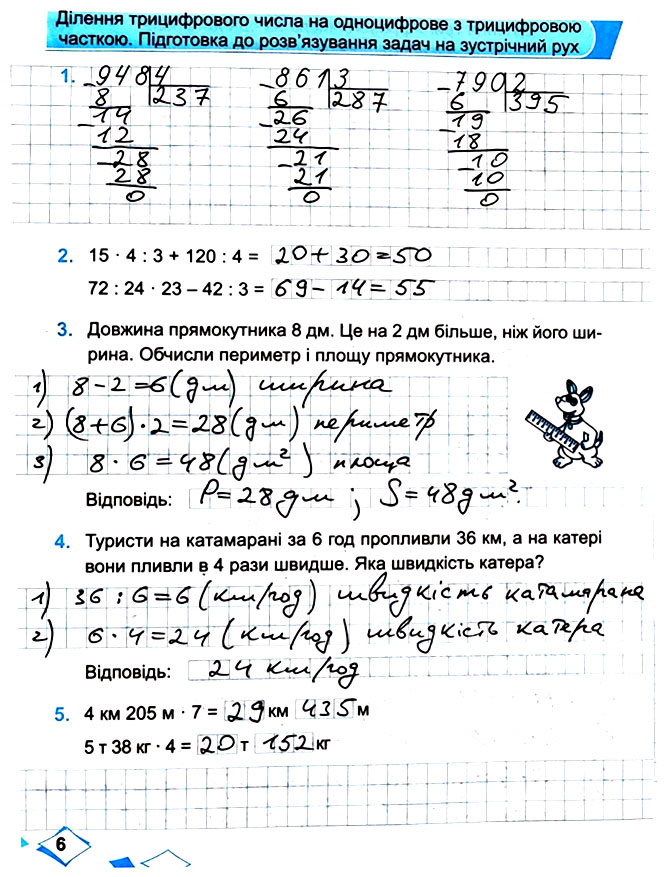 Ділення трицифрового числа на одноцифрове з трицифровою
часткою. Підготовка до розв'язування задач на зустрічний рух
1. 948 4 861 3 790 2
8 237 6 287 6 395
14 26 19
12 24 18
28 21 10
28 21 10
0 0 0
2. 15 · 4 : 3 + 120 : 4 = 20 + 30 = 50
72 : 24 · 23 – 42 : 3 = 69 – 14 = 55
3. Довжина прямокутника 8 дм. Це на 2 дм більше, ніж його ши-
рина. Обчисли периметр і площу прямокутника.
1) 8 – 2 = 6 (дм) ширина
2) (8 + 6) · 2 = 28 (дм) периметр
3) 8 · 6 = 48 (дм²) площа
Відповідь: P = 28 дм ; S = 48 дм².
4. Туристи на катамарані за 6 год пропливли 36 км, а на катері
вони пливли в 4 рази швидше. Яка швидкість катера?
1) 36 : 6 = 6 (км/год) швидкість катамарана
2) 6 · 4 = 24 (км/год) швидкість катера
Відповідь: 24 км/год
5. 4 км 205 м · 7 = 29 км 435 м
5 т 38 кг · 4 = 20 т 152 кг
6